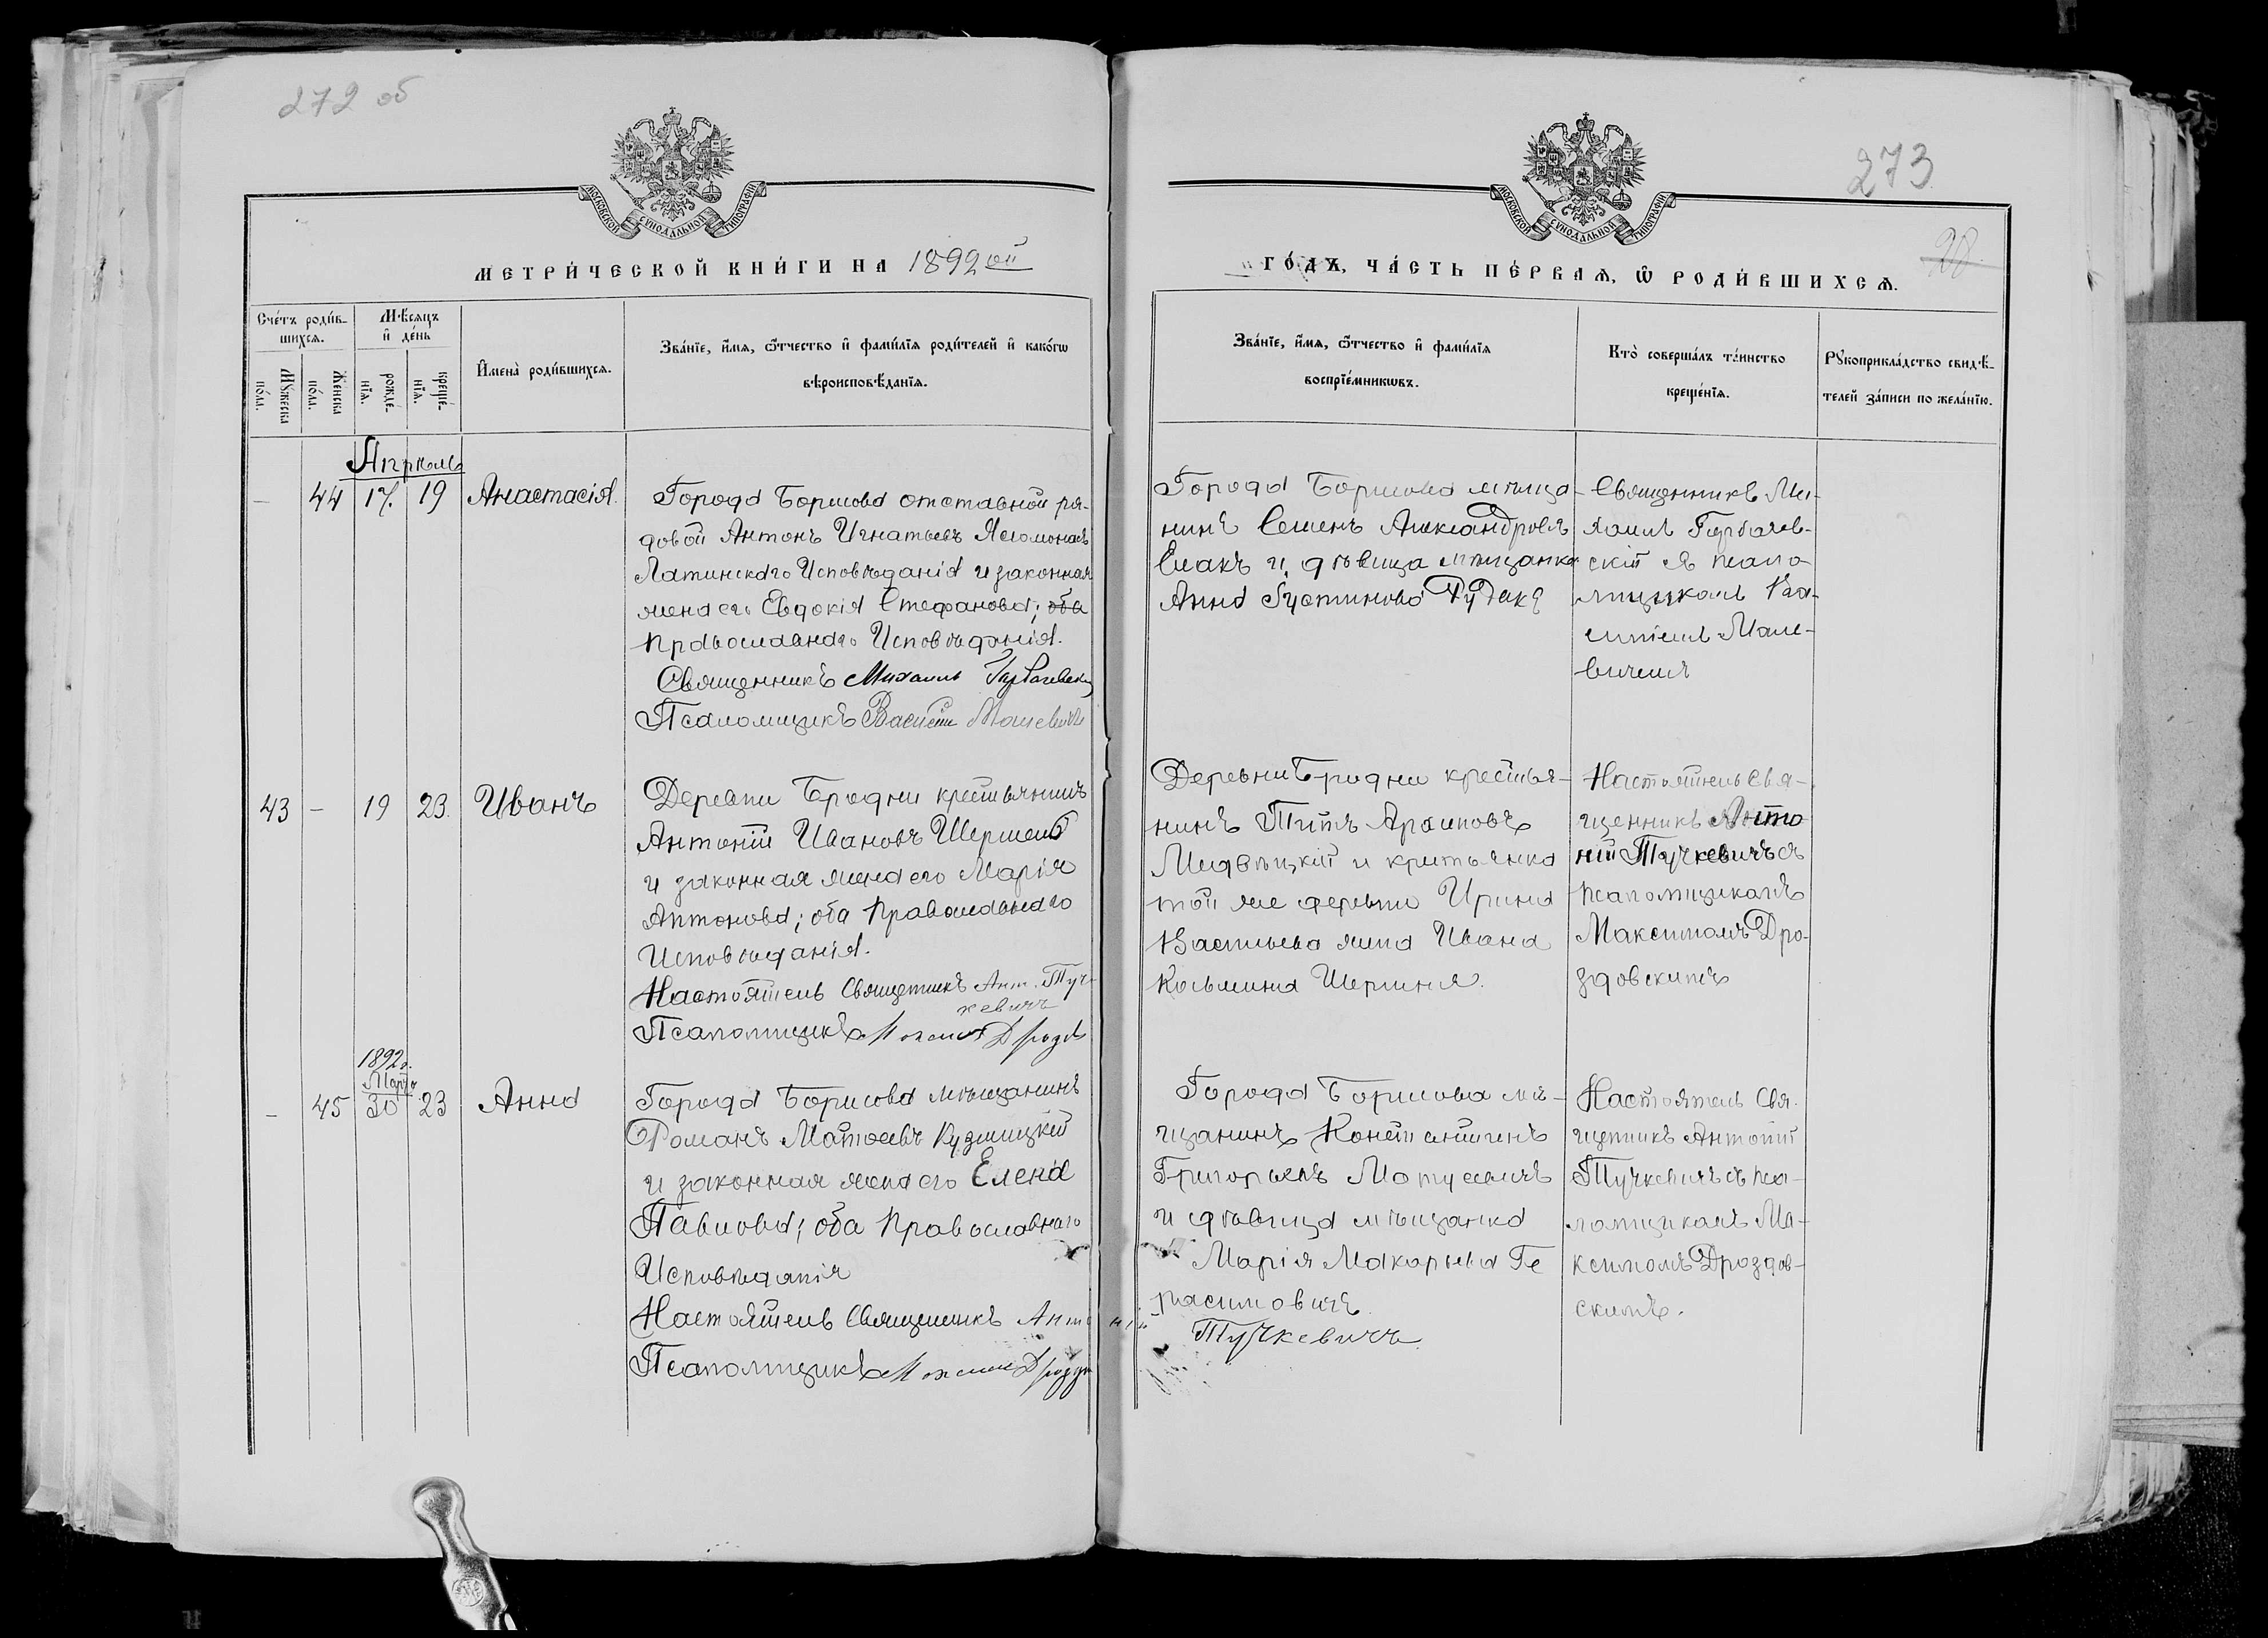 272 об
МОСКОВСКОЙ СУНОДАЛЬНОЙ ТИПОГРАФІИ
МЕТРИ́ЧЕСКОЙ КНИ́ГИ НА 1892ой
Сче́тъ роди́в-
шихсѧ.
Мѣ́сѧцъ
и҆ де́нь
Мꙋ́жеска
по́ла.
Же́нска
по́ла.
рожде́-
нїѧ.
креще́-
нїѧ.
И҆мена̀ роди́вшихсѧ.
Зва́нїе, и҆́мѧ, ѻ҆́тчество и҆ фами́лїѧ роди́телей и҆ како́гѡ
вѣроисповѣ́данїѧ.
Апрѣль
— 44 17. 19 Анастасія.
Города Борисова отставной ря-
довой Антонъ Игнатьевъ
Латинскаго Исповѣданія и законная
жена его Евдокія Стефанова; оба
Православнаго Исповѣданія.
Священникъ Михаилъ Горбачевскій
Псаломщикъ Василій Малевичъ
43 — 19 23. Иванъ
Деревни Бродни крестьянинъ
Антоній Ивановъ Шершень
и законная жена его Марія
Антонова; оба Православнаго
Исповѣданія.
Настоятель Священникъ Ант. Туч-
кевичъ
Псаломщикъ Максим Дрозд
1892 г.
Марта
— 45 30 23 Анна
Города Борисова мѣщанинъ
Романъ Матвеевъ Кузмицкій
и законная жена его Елена
Павлова; оба Православнаго
Исповѣданія
Настоятель Священникъ Антоній
Псаломщикъ Максим
273
МОСКОВСКОЙ СУНОДАЛЬНОЙ ТИПОГРАФІИ
28.
ГО́ДЪ, ЧА́СТЬ ПЕ́РВАѦ, Ѡ҆ РОДИ́ВШИХСѦ.
Зва́нїе, и҆́мѧ, ѻ҆́тчество и҆ фами́лїѧ
воспрїе́мникѡвъ.
Кто̀ соверша́лъ та́инство
креще́нїѧ.
Рꙋкоприкла́дство свидѣ́-
телей за́писи по жела́нїю.
Города Борисова мѣща-
нинъ Семенъ Александровъ
и дѣвица мѣщанка
Анна Густинова Рудакъ
Священникъ Ми-
хаилъ Горбачев-
скій съ псало-
мщикомъ Ва-
силіемъ Мале-
вичемъ
Деревни Бродни крестья-
нинъ Титъ Архиповъ
и крестьянка
той же деревни Ирина
Васильева жена Ивана
Козьмина Шершня.
Настоятель Свя-
щенникъ Анто-
ній Тучкевичъ съ
псаломщикомъ
Максимомъ Дро-
здовскимъ
Города Борисова мѣ-
щанинъ Константинъ
Григорьевъ Матусевичъ
и дѣвица мѣщанка
Марія Макарьева Ге
расимовичъ
Тучкевичъ
Настоятель Свя-
щенникъ Антоній
Тучкевичъ съ пса-
ломщикомъ Ма-
ксимомъ Дроздов-
скимъ.